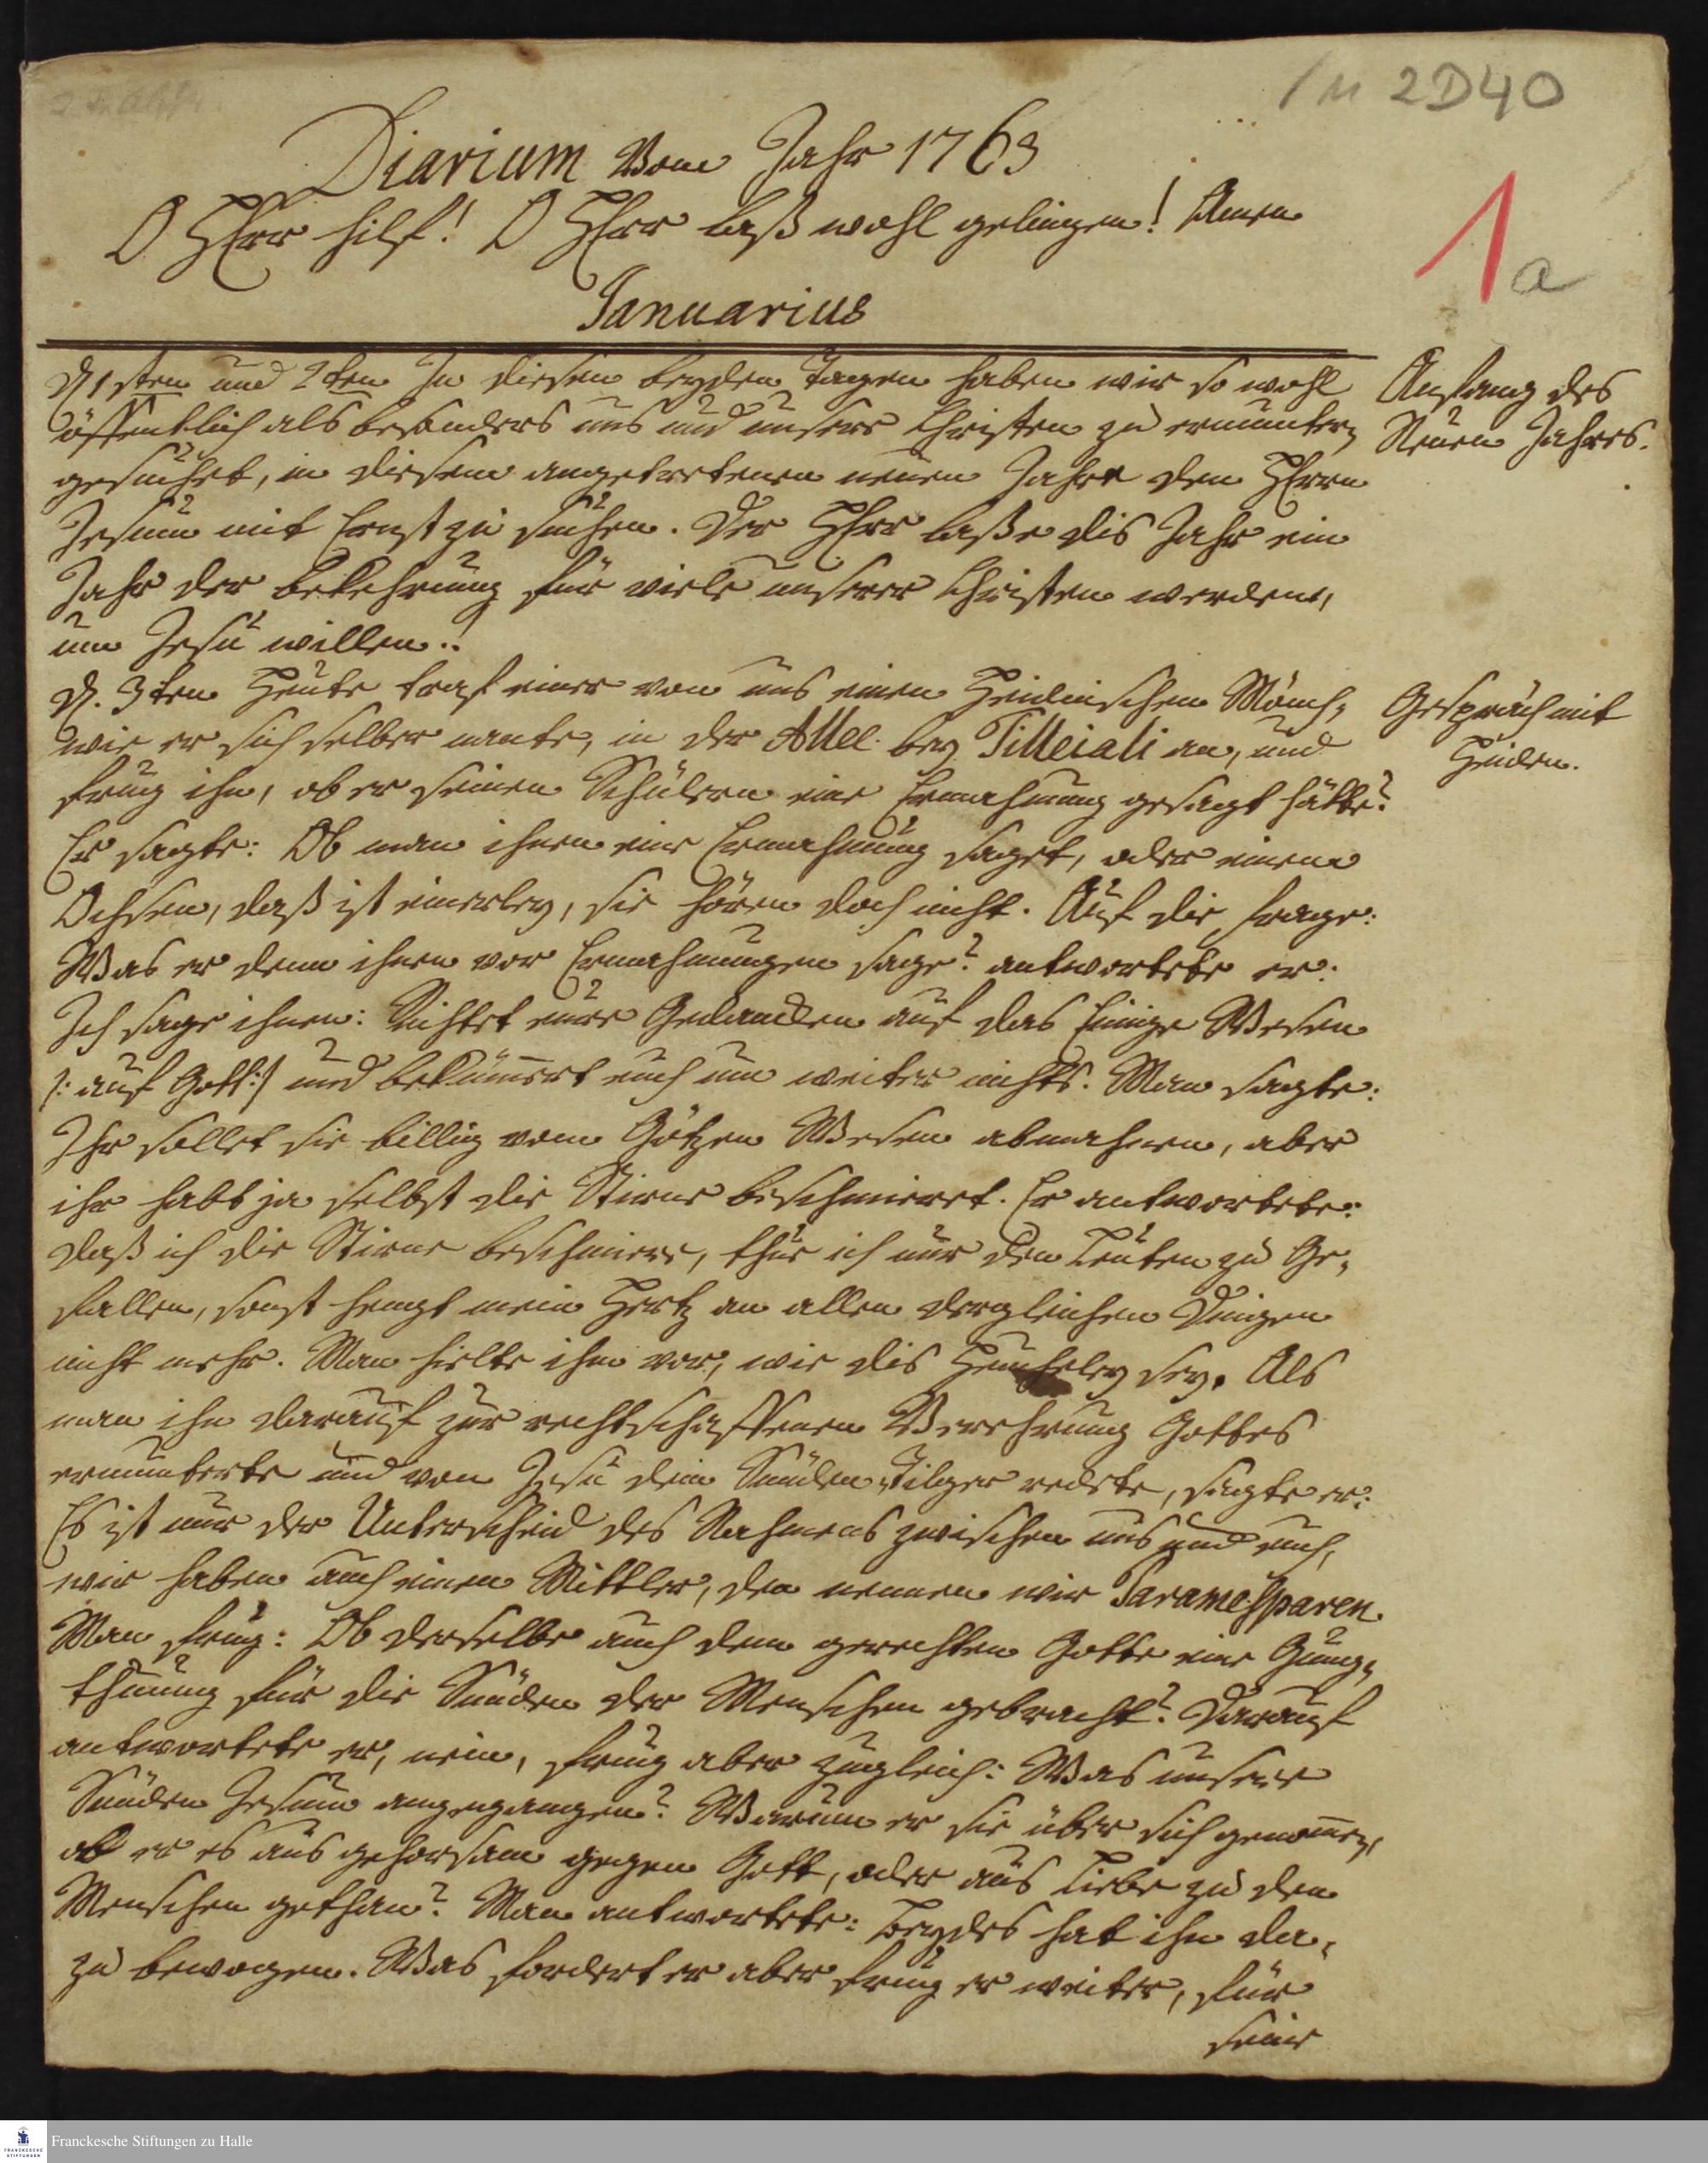 1 M 2D40
Diarium vom Jahr 1763
O HErr hilf! O HErr laß wohl gelingen! Amen
1a
Januarius
D. 1sten und 2ten In diesen beyden Tagen haben wir so wohl
Anfang des
öffentlich als besonders uns und unsere Christen zu ermuntern
Neuen Jahres.
gesuchet, in diesem angetretenen neuen Jahre den HErrn
Jesum mit Ernst zu suchen. Der HErr laße dis Jahr ein
Jahr der Bekehrung für viele unserer Christen werden,
um Jesu willen!
D. 3ten Heute traf einer von uns einen Heidnischen Mönch,
Gespräch mit
wie er sich selber nante, in der Allee bey Tilleiali an, und
Heiden.
frug ihn, ob er seinen Schülern eine Ermahnung gesagt hätte?
Er sagte: Ob man ihnen eine Ermahnung saget, oder einem
Ochsen, daß ist einerley, sie hören doch nicht. Auf die Frage:
Was er denn ihnen vor Ermahnungen sage? antwortete er:
Ich sage ihnen: Richtet eure Gedancken auf das Einige Wesen
/: auf Gott :/ und bekümmert euch um weiter nichts. Man sagte:
Ihr soltet sie billig vom Götzen Wesen abmahnen, aber
ihr habt ja selbst die Stirne beschmieret. Er antwortete:
Daß ich die Stirne beschmiere, thue ich nur den Leuten zu Ge-
fallen, sonst hengt mein Hertz an allen dergleichen Dingen
nicht mehr. Man hielte ihm vor, wie dis Heucheley sey. Als
man ihn darauf zur rechtschaffenen Verehrung Gottes
ermunterte und von Jesu dem Sünden Tilger redete, sagte er:
Es ist nur der Unterscheid des Nahmens zwischen uns und euch,
wir haben auch einen Mittler, den nennen wir Paramesparen.
Man frug: Ob derselbe auch dem gerechten Gotte eine Gnug-
thuung für die Sünden der Menschen gebracht? Darauf
antwortete er, nein, frug aber zugleich: Was unsere
Sünden Jesum angegangen? Warum er sie über sich genommen,
ob er es aus gehorsam gegen Gott, oder aus Liebe zu den
Menschen gethan? Man antwortete: Beydes hat ihn da-
zu bewogen. Was fordert er aber frug er weiter, für
seine
Franckesche Stiftungen zu Halle
FRANCKESCHE STIFTUNGEN